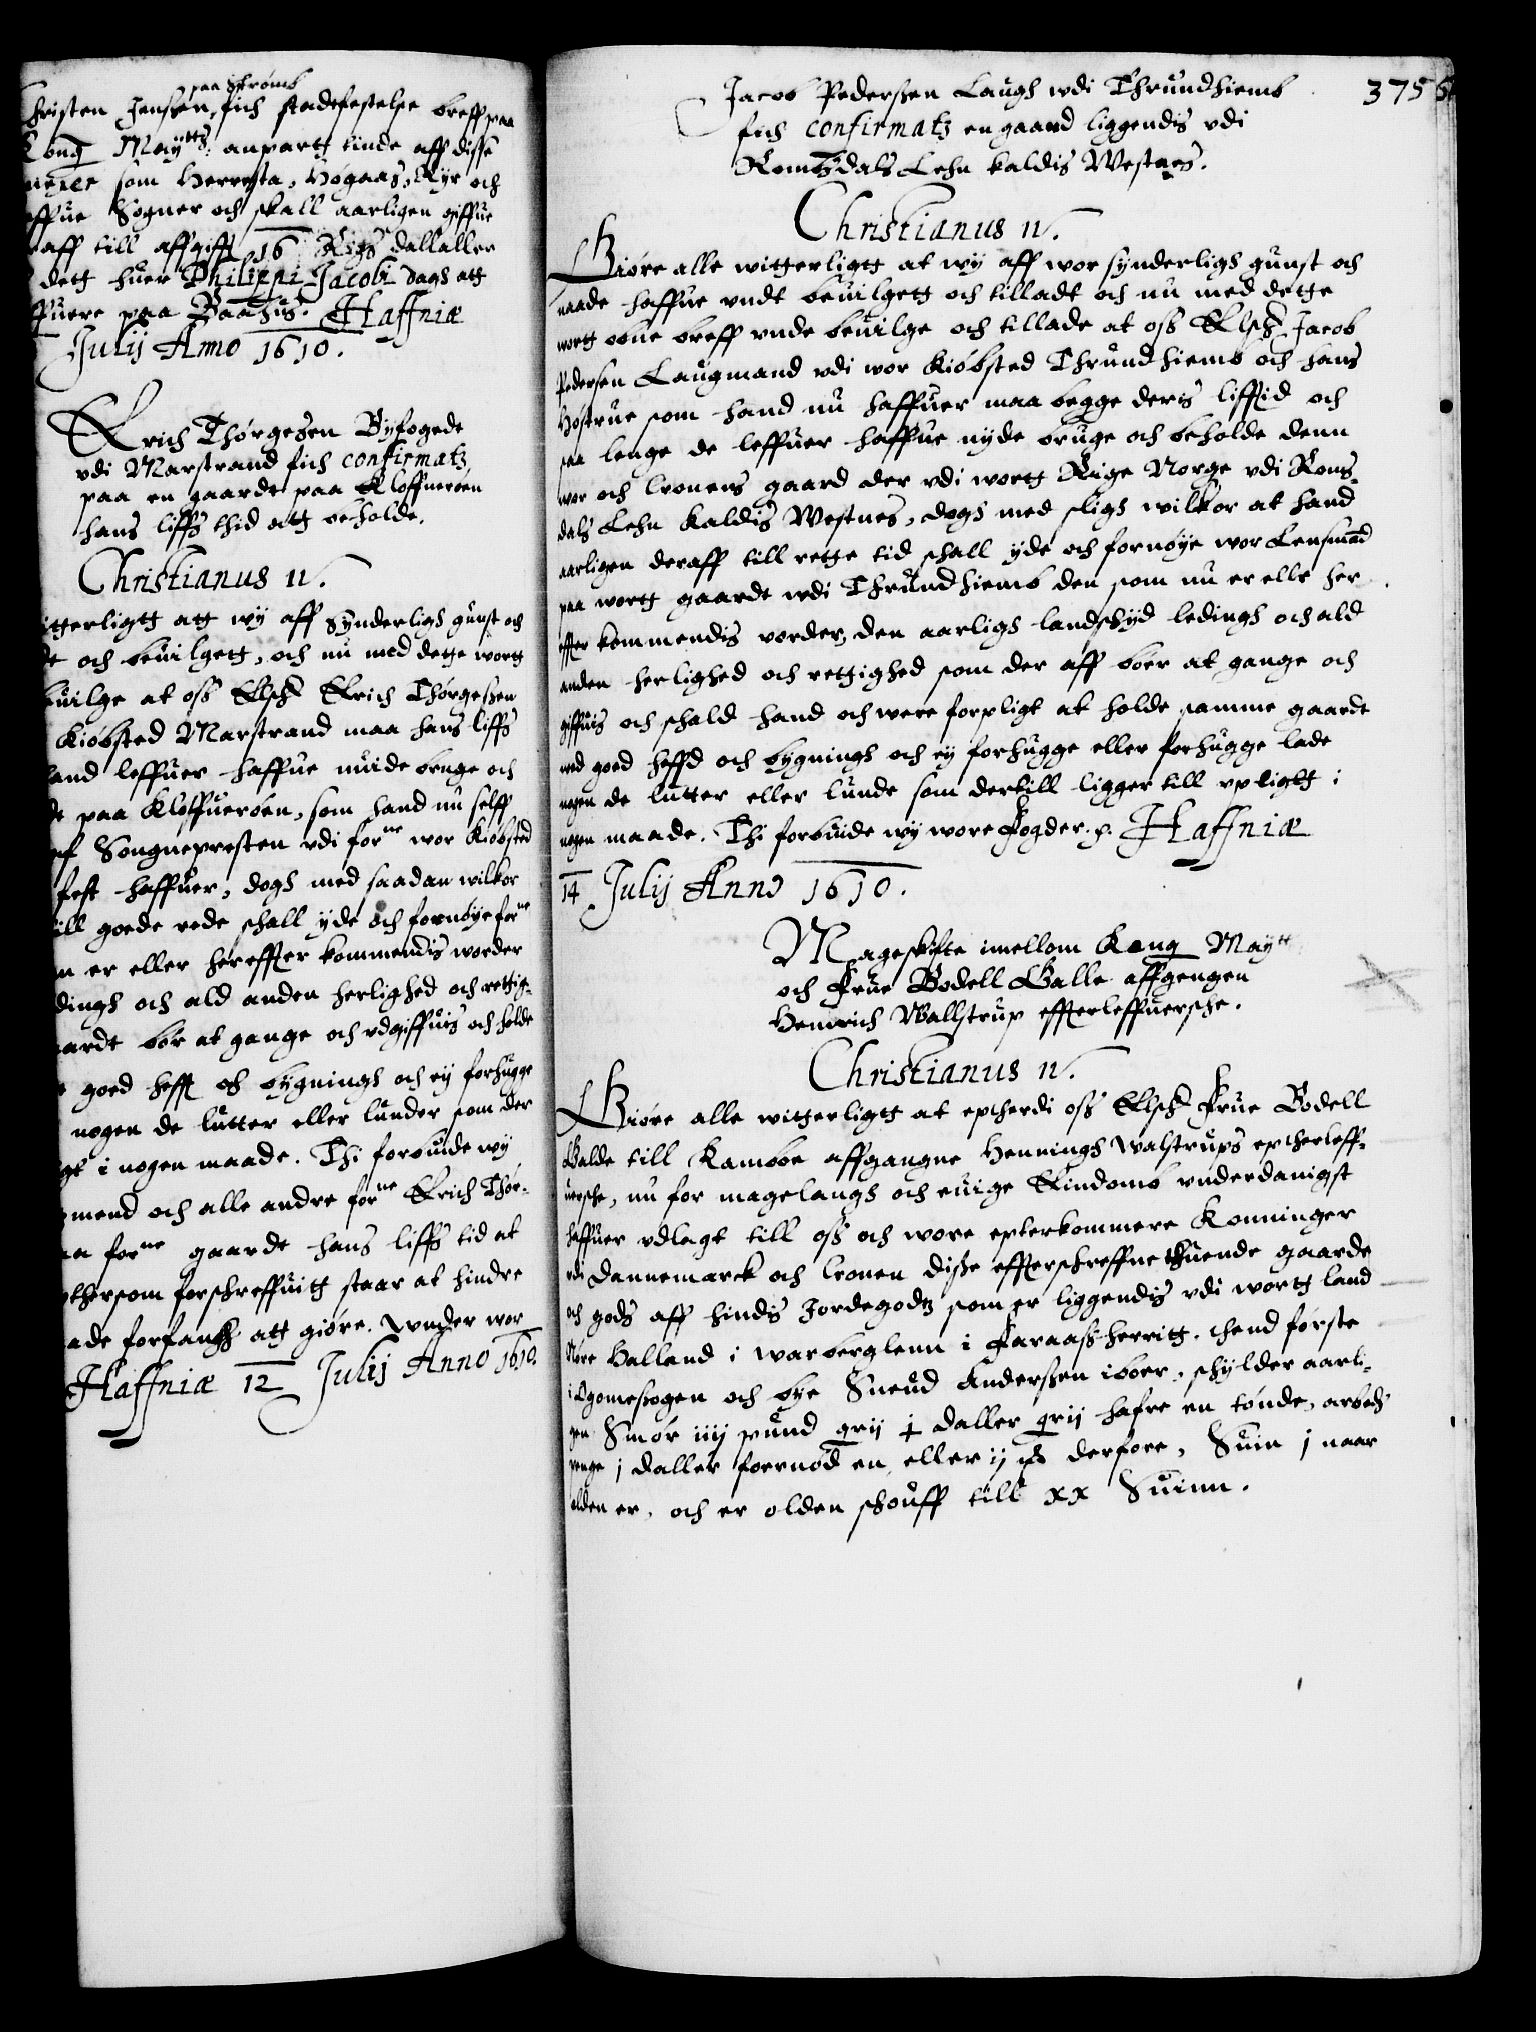 paa Strømb
Christen Jensen, fich stadefestelse breff paa
Kong Maytts: anpartt tinde aff disse
som Herresta, Høgaas, Kyr och
effue Sogner och skall aarligen giffue
raff till affgifft 16 Rigs dallaller
dett huer Philippi Jacobi dags att
ffuere paa Baahus. Haffniæ
Julij Anno 1610.
Erich Thørgesen Byfogede
vdi Marstrand fich confirmatz
paa en gaarde paa Kloffueroen
hans liffs thid att beholde.
Christianus 4.
itterligtt att wy aff synderligh gunst och
dt och beuilgett, och nu med dette wortt
euilge at oss Elsch Erich Thørgessen
Kiøbsted Marstrand maa hans liffs
land leffuer haffue nuide bruge och
de paa Kloffuerøen, som hand nu selff
af Songnepresten vdi forne wor Kiøbsted
fest haffuer, dogh med saadan wilkor
till goede rede schall yde och fornøye forne
n er eller hereffter kommendis worder
dingh och ald anden herlighed och rettig-
aarde bør at gange och vdgiffuis och holde
goed hefft och bygningh och ey forhugge
nogen de lutter eller lunder som der
gt i nogen maade. Thi forbiude wy
mend och alle andre forne Erich Thør-
aa forne gaarde hans liffs tid at
thersom forschreffuitt staar at hindre
ade forfanch att giøre. Vnder wor
Haffniæ 12 Julij Anno 1610.
375
Jacob Pederssen Laugh vdi Thrundhiemb
fich confirmatz en gaard liggendis vdi
Romtzdals Lehn kaldis Westnes.
Christianus 4.
Giøre alle witterligtt at wy aff wor synderligh gunst och
naade haffue vndt beuilgett och tilladt och nu med dette
wortt obne breff vnde beuilge och tillade at oss Elsch Jacob
Pedersen Laugmand vdi wor Kiøbsted Thrundhiemb och hans
Høstrue som hand nu haffuer maa begge deris liffstid och
saa lenge de leffuer haffue nyde bruge och beholde denn
wor och Cronens gaard der vdi wortt Rige Norge vdi Roms-
dals Lehn kaldis Westnes, dogh med sligh wilkor at hand
aarligen deraff till rette tid schall yde och fornøye wor Lensmad
paa wortt gaarde vdi Thrundhiemb den som nu er elle her
effter kommendis vorder, den aarligh landschyd ledingh och ald
anden herlighed och rettighed som der aff bøer at gange och
giffuis och schald hand och were forpligt at holde samme gaarde
wed goed heffd och bygningh och ey forhugge eller forhugge lade
nogen de lutter eller lunde som dertill ligger till vpligtt i
nogen maade. Thi forbiude wy wore Fogder. p. Haffniæ
14 Julij Anno 1610.
Mageskifte imellom Kong Maytt
och Frue Bodell Galle affgengen
Henrich Wallstrup effterleffuersche.
Christianus 4.
Giøre alle witterligtt at eptherdi oss Elsch Frue Bodell
Galde till Kamboe affgangne Henningh Walstrups eptherleff-
uersche, nu for magelaugh och euige Eiendomb vnderdanigst
haffuer vdlagt till oss och wore epterkommere Konninger
vdi Dannemarck och Cronen disse effterschreffne thuende gaarde
och gods aff hindis Jordegodtz som er liggendis vdi wortt land
Nøre Halland i warberglenn i Faraass-herritt. thend første
i Ogomesogen och bye Sneud Anderssen iboer, schylder aarli-
gen Smør iiij pund grij daller grij hafre en tønde, arbeds
penge j daller foernød en eller ij derfore, Suin j naar
olden er, och er olden schouff till xx Suinn.